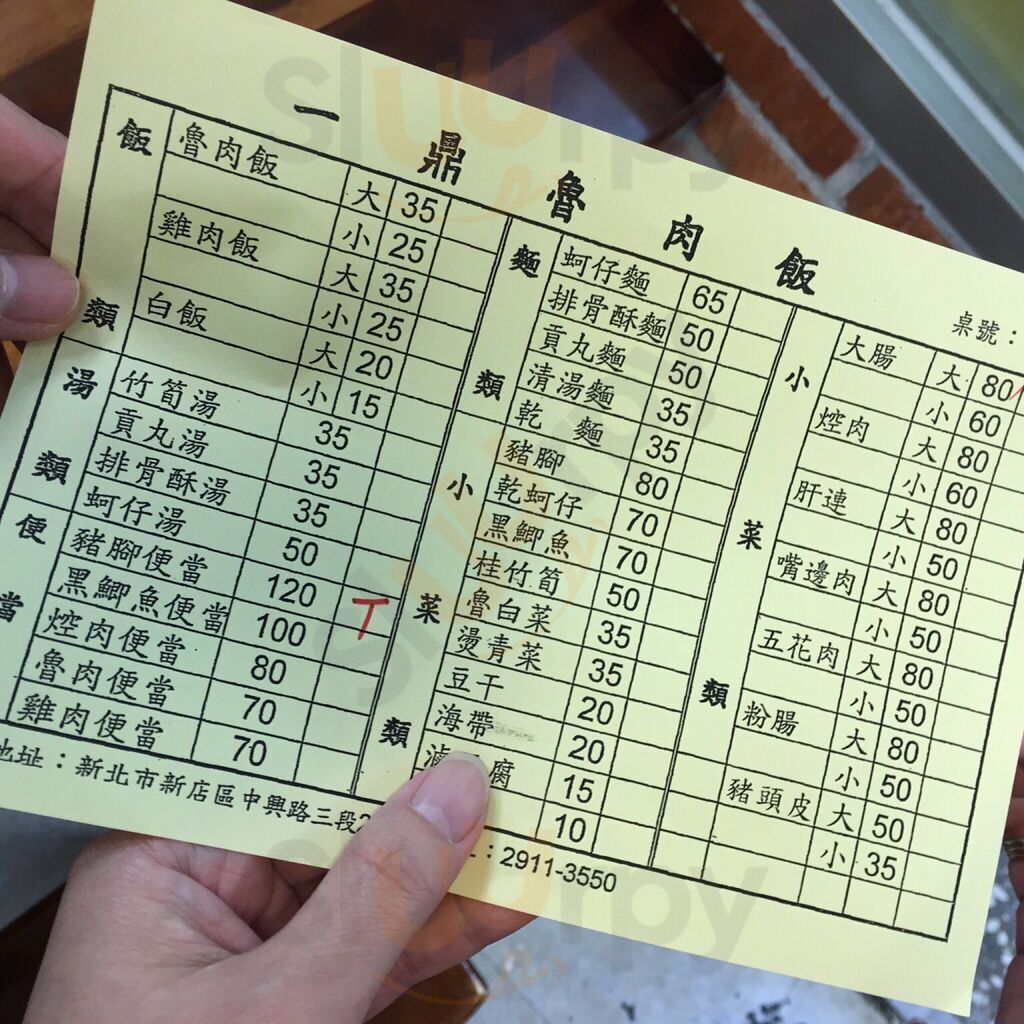 一鼎魯肉飯
桌號：
飯類
魯肉飯 大 35
小 25
雞肉飯 大 35
小 25
白飯 大 20
小 15
湯類
竹筍湯 35
貢丸湯 35
排骨酥湯 35
蚵仔湯 50
便當
豬腳便當 120
黑鯽魚便當 100 T
焢肉便當 80
魯肉便當 70
雞肉便當 70
麵類
蚵仔麵 65
排骨酥麵 50
貢丸麵 50
清湯麵 35
乾 麵 35
小菜類
豬腳 80
乾蚵仔 70
黑鯽魚 70
桂竹筍 50
魯白菜 35
燙青菜 35
豆干 20
海帶 20
滷 腐 15
10
小菜類
大腸 大 80
小 60
焢肉 大 80
小 60
肝連 大 80
小 50
嘴邊肉 大 80
小 50
五花肉 大 80
小 50
粉腸 大 80
小 50
豬頭皮 大 50
小 35
地址：新北市新店區中興路三段2
：2911-3550
slurpy
slurpy
slurpy